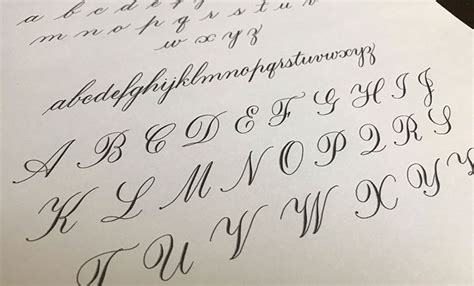 a b c d e f g
m n o p q r s t u v
w x y z
abcdefghijklmnopqrstuvwxyz
A B C D E F G H I J
K L M N O P Q R S
T U V W X Y